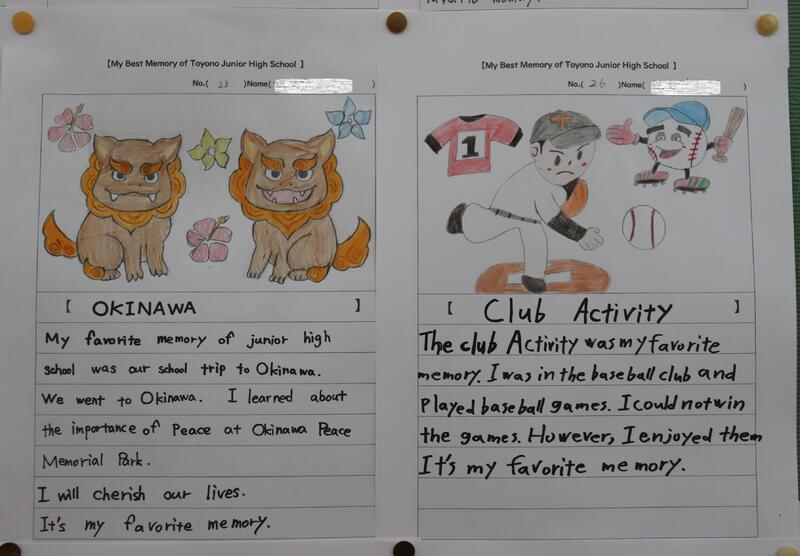 favorite memory.
【My Best Memory of Toyono Junior High School 】
No.( 23 )Name( )
[ OKINAWA ]
My favorite memory of junior high
school was our school trip to Okinawa.
We went to Okinawa. I learned about
the importance of Peace at Okinawa Peace
Memorial Park.
I will cherish our lives.
It's my favorite memory.
【My Best Memory of Toyono Junior High School 】
No.( 26 )Name( )
1
T
[ Club Activity ]
The club Activity was my favorite
memory. I was in the baseball club and
Played baseball games. I could not win
the games. However, I enjoyed them
It's my favorite memory.